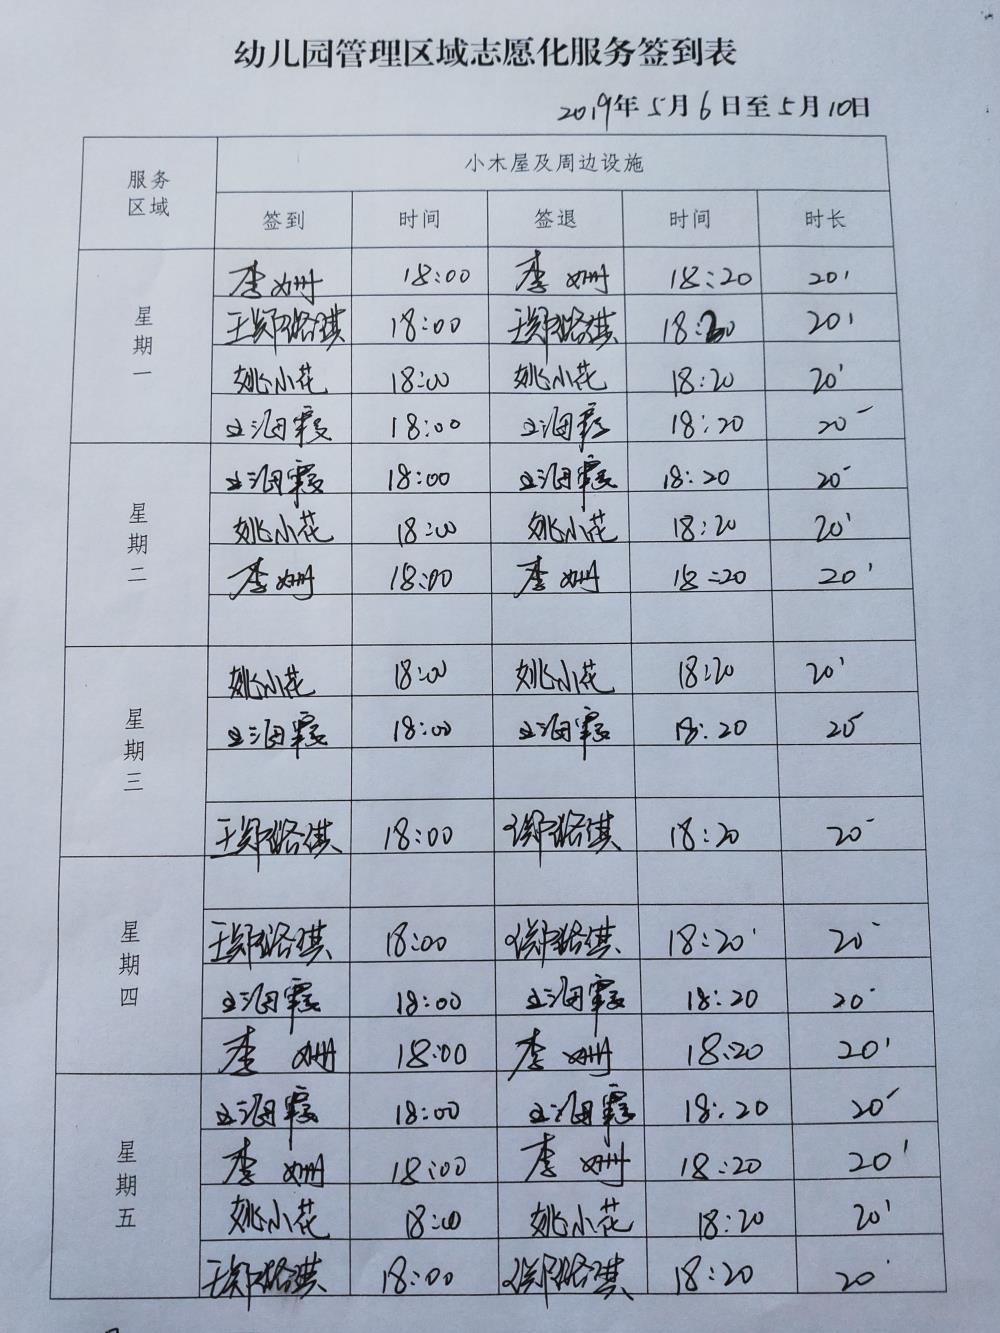 幼儿园管理区域志愿化服务签到表
2019年5月6日至5月10日
服务区域 小木屋及周边设施
签到 时间 签退 时间 时长
星期一
李姗 18:00 李姗 18:20 20'
王郑璐琪 18:00 王郑璐琪 18:20 20'
姚小花 18:00 姚小花 18:20 20'
王海霞 18:00 王海霞 18:20 20'
星期二
王海霞 18:00 王海霞 18:20 20'
姚小花 18:00 姚小花 18:20 20'
李姗 18:00 李姗 18:20 20'
星期三
姚小花 18:00 姚小花 18:20 20'
王海霞 18:00 王海霞 18:20 20'
王郑璐琪 18:00 王郑璐琪 18:20 20'
星期四
王郑璐琪 18:00 王郑璐琪 18:20 20'
王海霞 18:00 王海霞 18:20 20'
李姗 18:00 李姗 18:20 20'
星期五
王海霞 18:00 王海霞 18:20 20'
李姗 18:00 李姗 18:20 20'
姚小花 18:00 姚小花 18:20 20'
王郑璐琪 18:00 王郑璐琪 18:20 20'